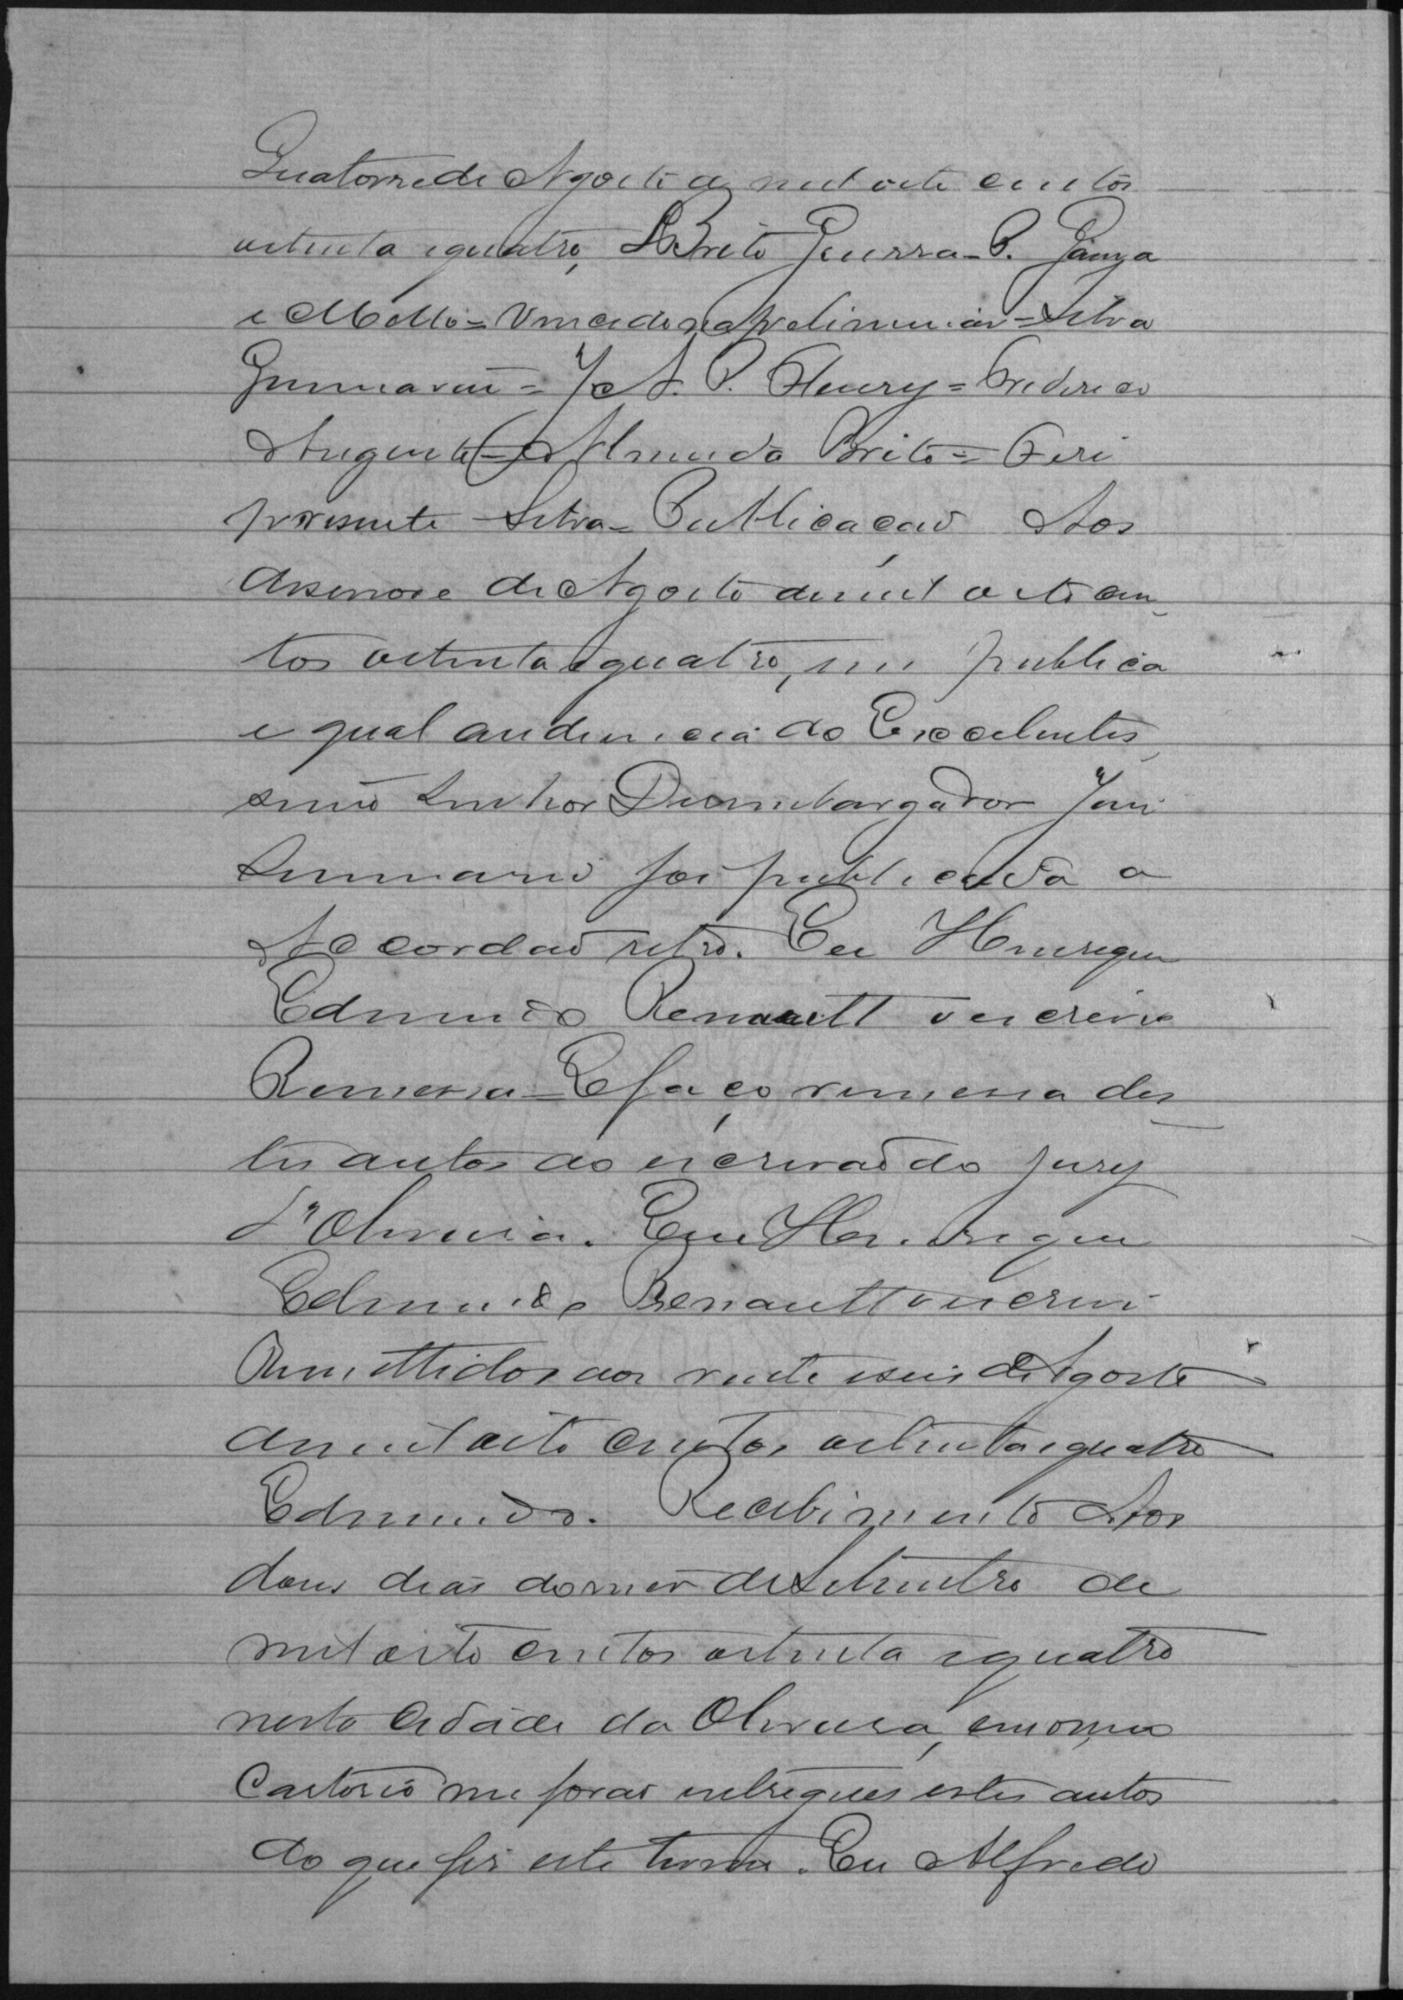 Quatorze de Agosto de mil oito centos
oitenta e quatro, L. Brito Guerra - P. Gama
e Mello = Vencido na preliminar = Silva
Guimarães = J. A. P. Fleury = Frederico
Augusto = Almeida Brito = Fui
presente Silva = Publicação Aos
desenove de Agosto de mil oito cen
tos oitenta e quatro, em publica
e gual audiencia do Excellentis
simo Senhor Desembargador Juiz
Semanario foi publicada a
Accordaõ retro. Eu Henrique
Edmundo Renault o escrivi
Remessa = E faço remessa des
tes autos ao escrivaõ do jury
d'Oliveira. Eu Henrique
Edmundo Renault o escrivi
Remettidos aos vinte e seis de Agosto
de mil oito centos oitenta e quatro
Edmundo. Recebimento Aos
dous dias do mez de Setembro de
mil oito centos oitenta e quatro
nesta Cidade da Oliveira, em o meu
Cartorio me foraõ entregues estes autos
do que fis este termo. Eu Alfredo